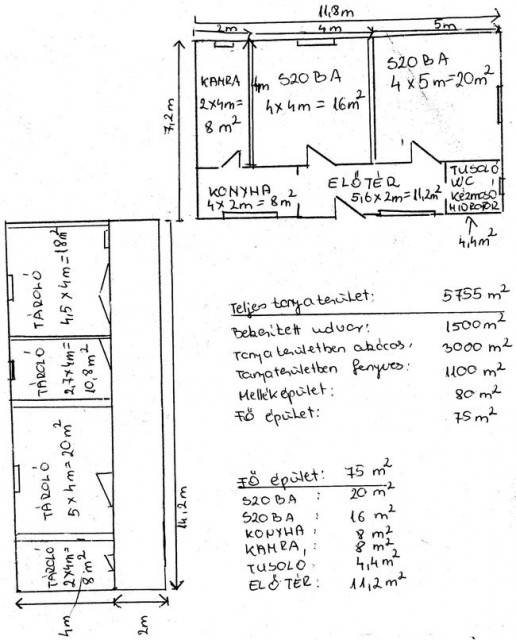 11,8m
2m
4m
5m
7,2m
KAMRA
2x4m=
8 m²
4m
SZOBA
4 x 4m = 16m²
SZOBA
4 x 5m=20m²
KONYHA
4 x 2m = 8m²
ELŐTÉR
5,6 x 2m = 11,2m²
TUSOLÓ
WC
KÉZMOSÓ
HIDROFOR
4,4m²
TÁROLÓ
4,5 x 4m = 18m²
TÁROLÓ
2,7x4m=
10,8 m²
TÁROLÓ
5 x 4m = 20m²
TÁROLÓ
2x4m=
8m²
14,2m
4m
2m
Teljes tanyaterület: 5755 m²
Bekerített udvar: 1500m²
Tanyaterületben akácos: 3000 m²
Tanyaterületben fenyves: 1100 m²
Melléképület: 80 m²
Fő épület: 75 m²
Fő épület: 75 m²
SZOBA : 20 m²
SZOBA : 16 m²
KONYHA : 8 m²
KAMRA : 8 m²
TUSOLO : 4,4m²
ELŐTÉR: 11,2m²